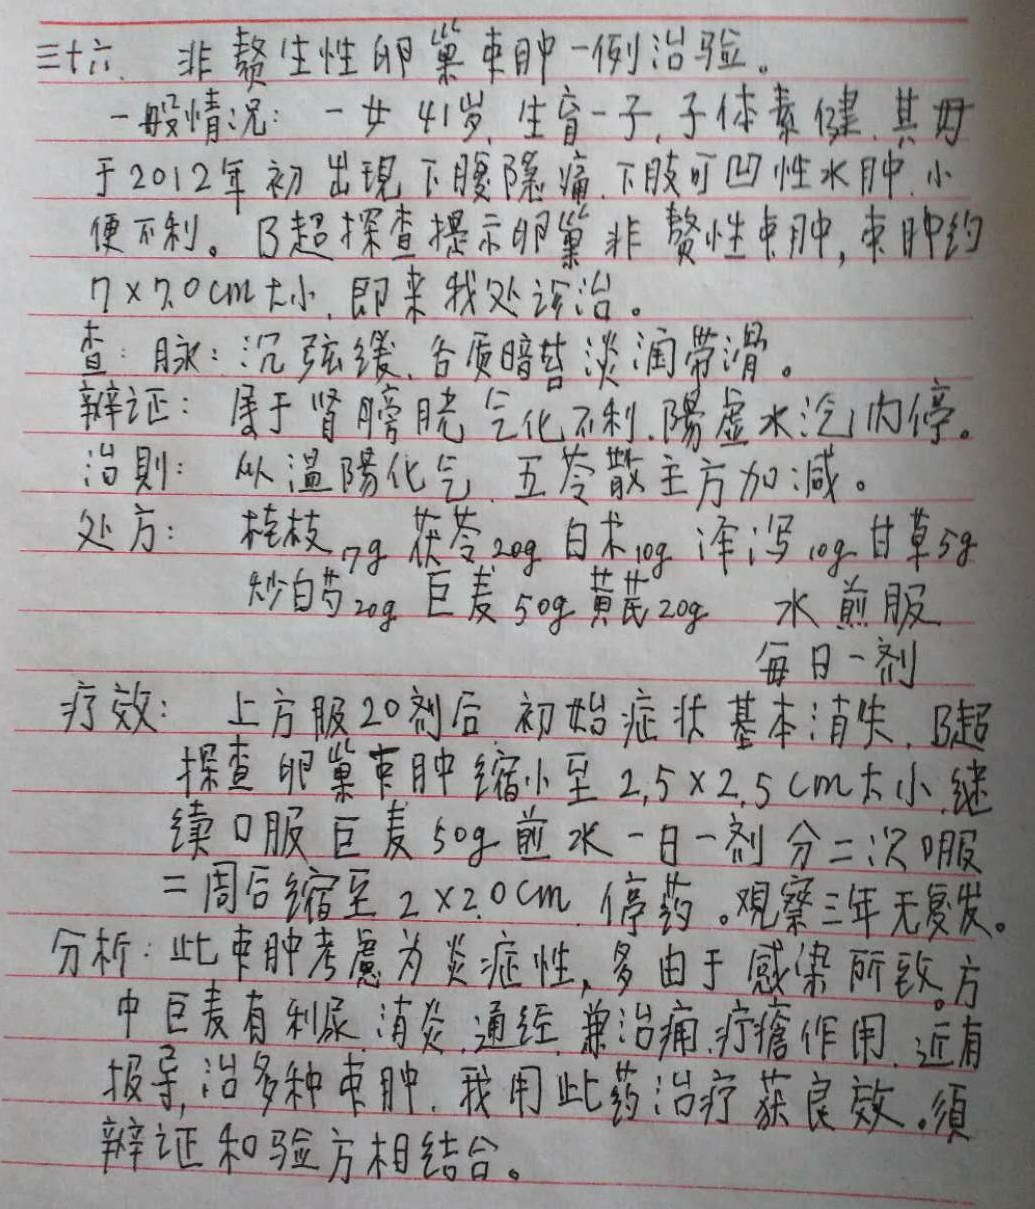 三十六、非赘生性卵巢束肿一例治验。
一般情况：一女41岁，生育一子，子体素健，其母
于2012年初出現下腹隐痛，下肢可凹性水肿，小
便不利。B超探查提示卵巢非赘性束肿，束肿约
7×7.0cm大小，即来我处诊治。
查：脉：沉弦缓，舌质暗苔淡润带滑。
辨证：属于肾膀胱气化不利，陽虚水气内停。
治則：从温陽化气，五苓散主方加减。
处方：桂枝17g 茯苓20g 白术10g 泽泻10g 甘草5g
炒白芍20g 巨麦50g 黄芪20g 水煎服
每日一剂
疗效：上方服20剂后，初始症状基本消失，B超
探查卵巢束肿缩小至2.5×2.5cm大小，继
续口服巨麦50g煎水一日一剂分二次口服
二周后缩至2×2.0cm，停药。观察三年无复发。
分析：此束肿考慮为炎症性，多由于感染所致。方
中巨麦有利尿，消炎，通经，兼治痈，疗瘡作用，近有
报导，治多种束肿，我用此药治疗获良效。須
辨证和验方相结合。